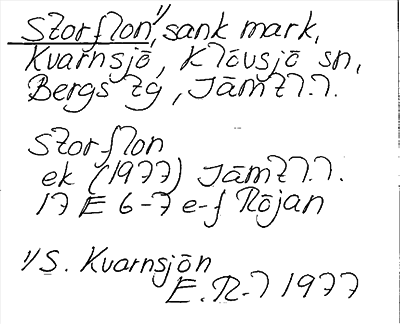 Storflon,¹⁾ sank mark,
Kvarnsjö, Klövsjö sn,
Bergs tg, Jämtl.l.
Storflon
ek (1977) Jämtl.l.
17 E 6-7 e-f Röjan
¹⁾ S. Kvarnsjön
E.R-l 1977